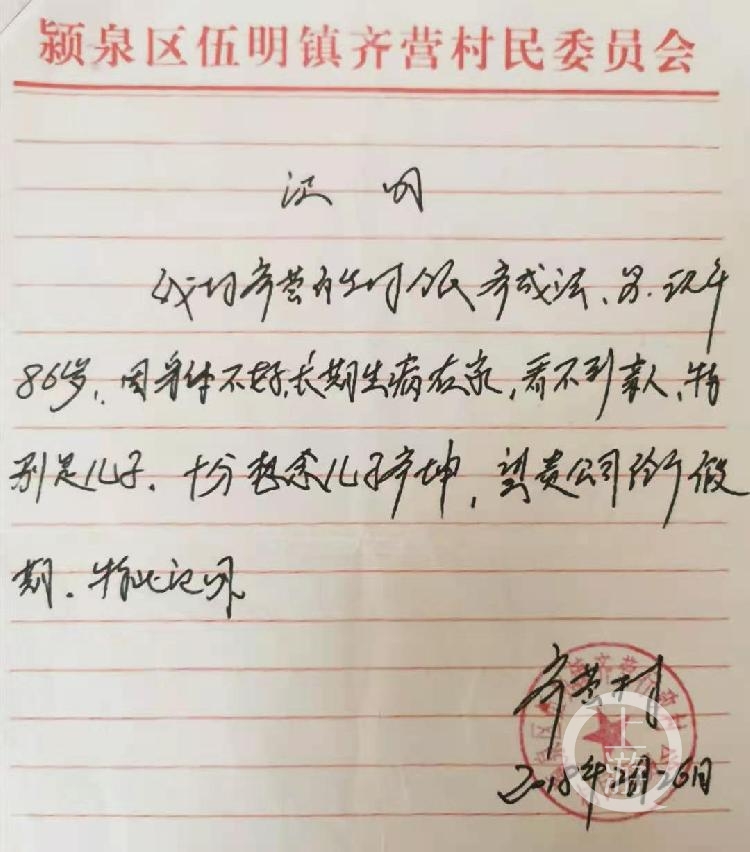 颍泉区伍明镇齐营村民委员会
证明
我村齐营村民齐成法、男、现年
86岁,因身体不好,长期生病在家,看不到亲人、特
别是儿子、十分想念儿子齐坤,望贵公司给予假
期、特此证明
齐营村
2018年 月26日
上游